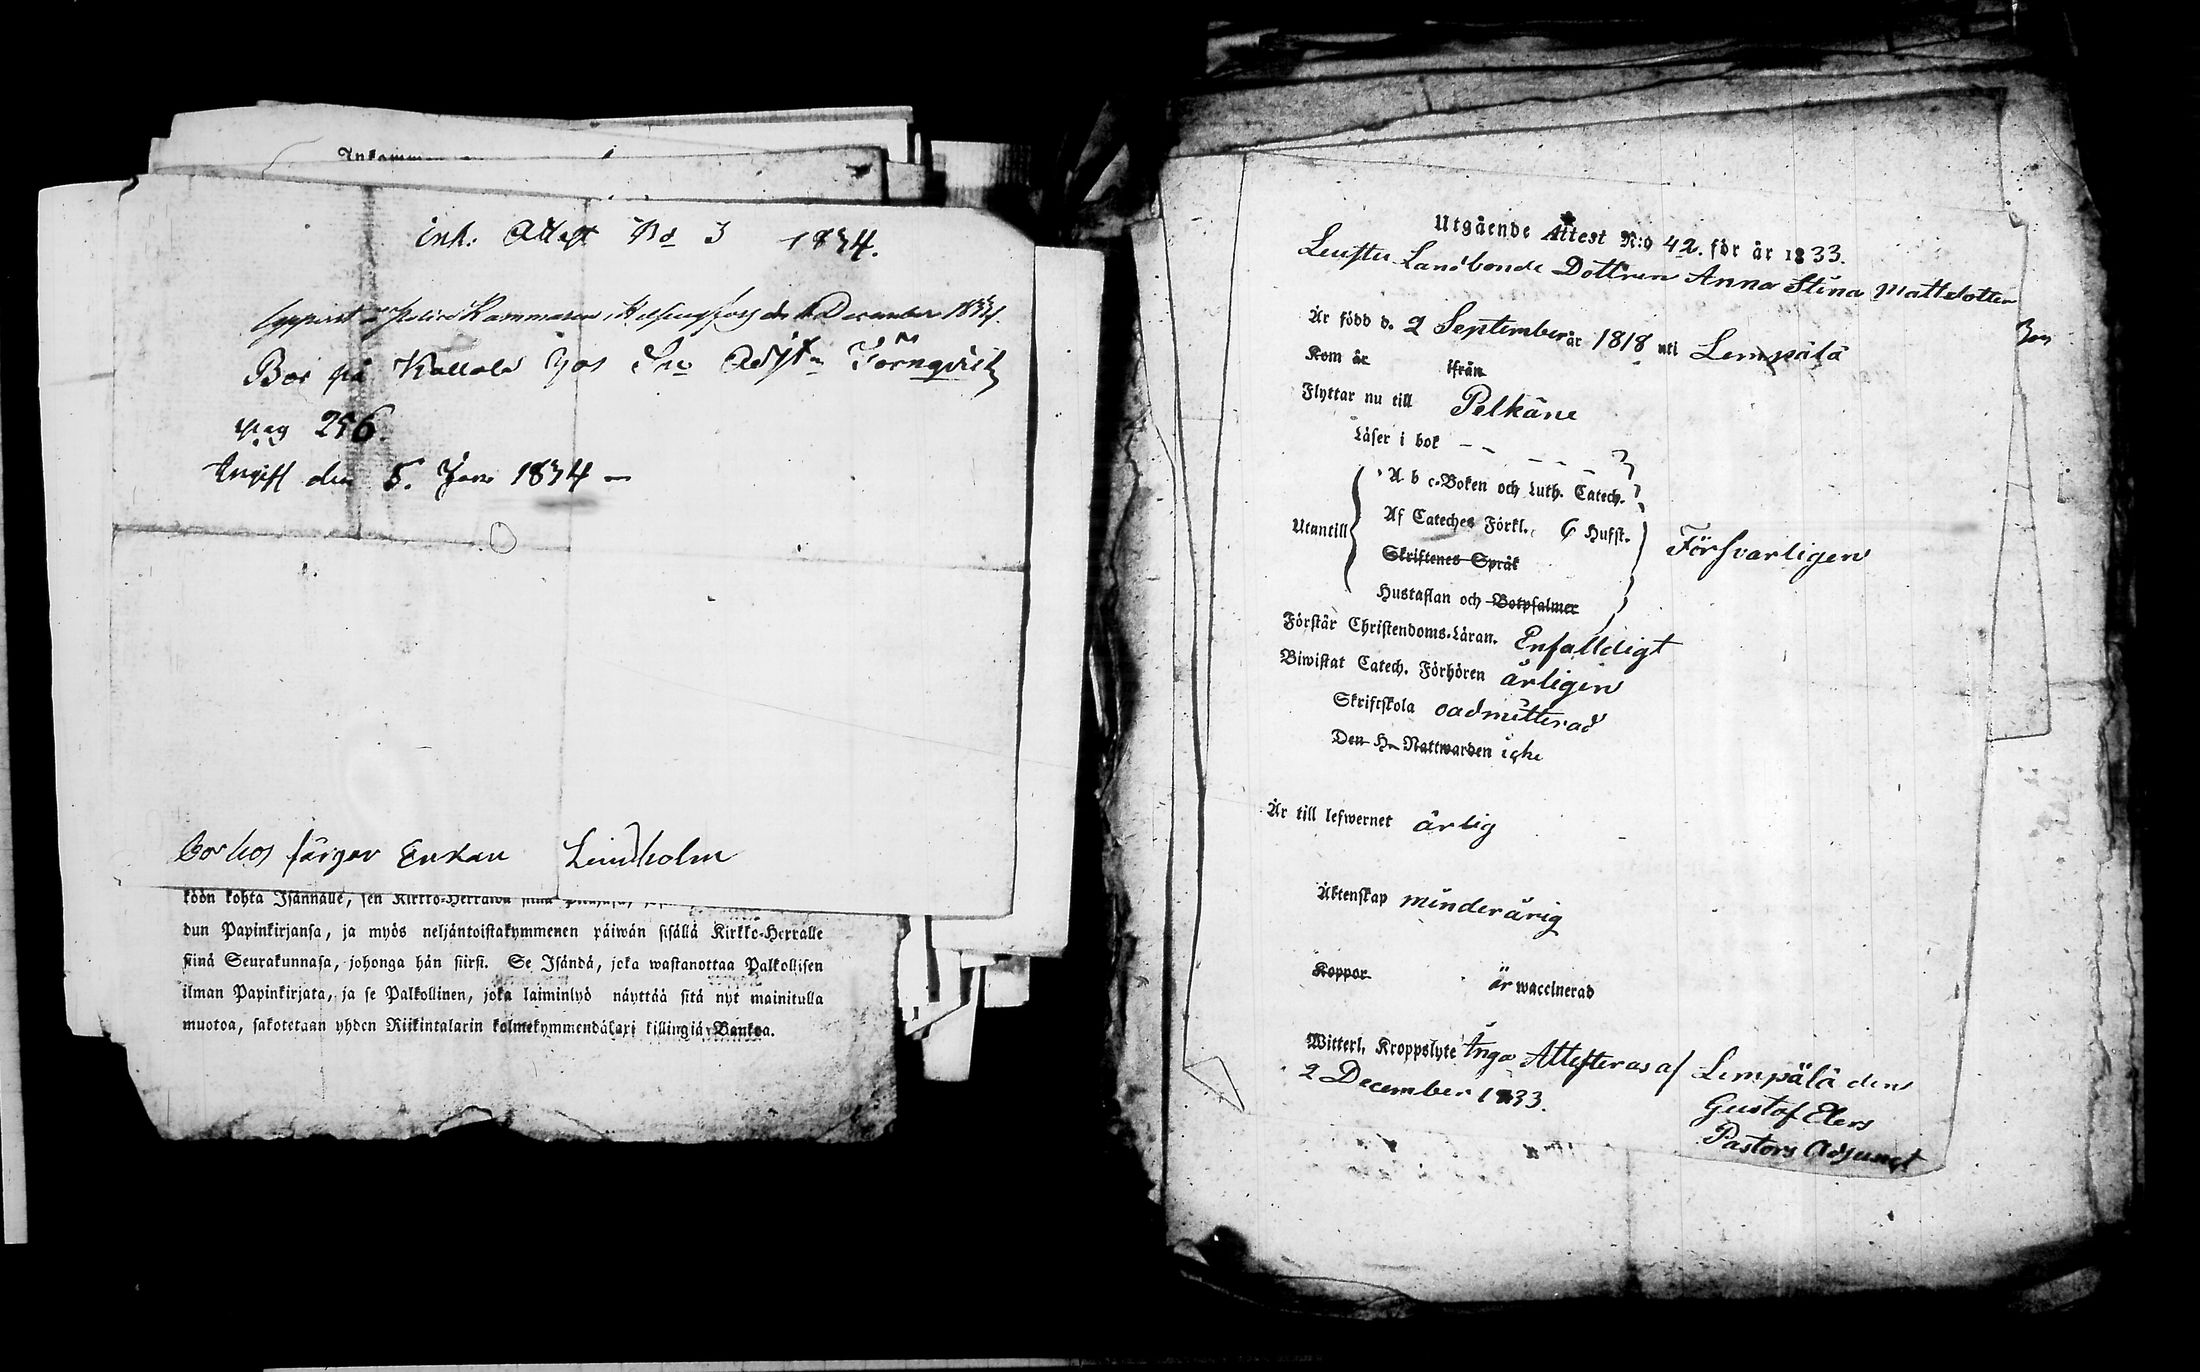 Ink. Attest No 3 1834.
Police Kammaren Helsingfors d. December 1834.
Bor på Kallola hos Adjt. Törnqvist
pag 256.
den 5. Jan 1834 —
Bor hos färgar Enkan Lindholm
köön kohta Isännälle, sen Kirkko-Herralda
dun Papinkirjansa, ja myös neljäntoistakymmenen päiwän sisällä Kirkko-Herralle
siinä Seurakunnasa, johonga hän siirsi. Se Isändä, joka wastanottaa Palkollisen
ilman Papinkirjata, ja se Palkollinen, joka laiminlyö näyttää sitä nyt mainitulla
muotoa, sakotetaan yhden Riikintalarin kolmekymmendäkaxi killingiä Bankoa.
Utgående Attest N:o 42. för år 1833.
Landbonde Dottren Anna Stina Mattsdotter
Är född d. 2 September år 1818 uti Lempälä
Kom år ifrån
Flyttar nu till Pelkäne
Läser i bok – – – – –
A b c-Boken och Luth. Catech.
Utantill Af Cateches Förkl. 6 Hufst. Försvarligen
Skriftenes Språk
Hustaflan och Botpsalmer
Förstår Christendoms-Läran. Enfalldigt
Biwistat Catech. Förhören årligen
Skriftskola oadmitterad
Den H. Nattwarden icke
Är till lefwernet ärlig
Äktenskap minderårig
Koppor är waccinerad
Witterl. Kroppslyte Inga Attesteras af Lempälä den
2 December 1833.
Gustaf Elers
Pastors Adjunct